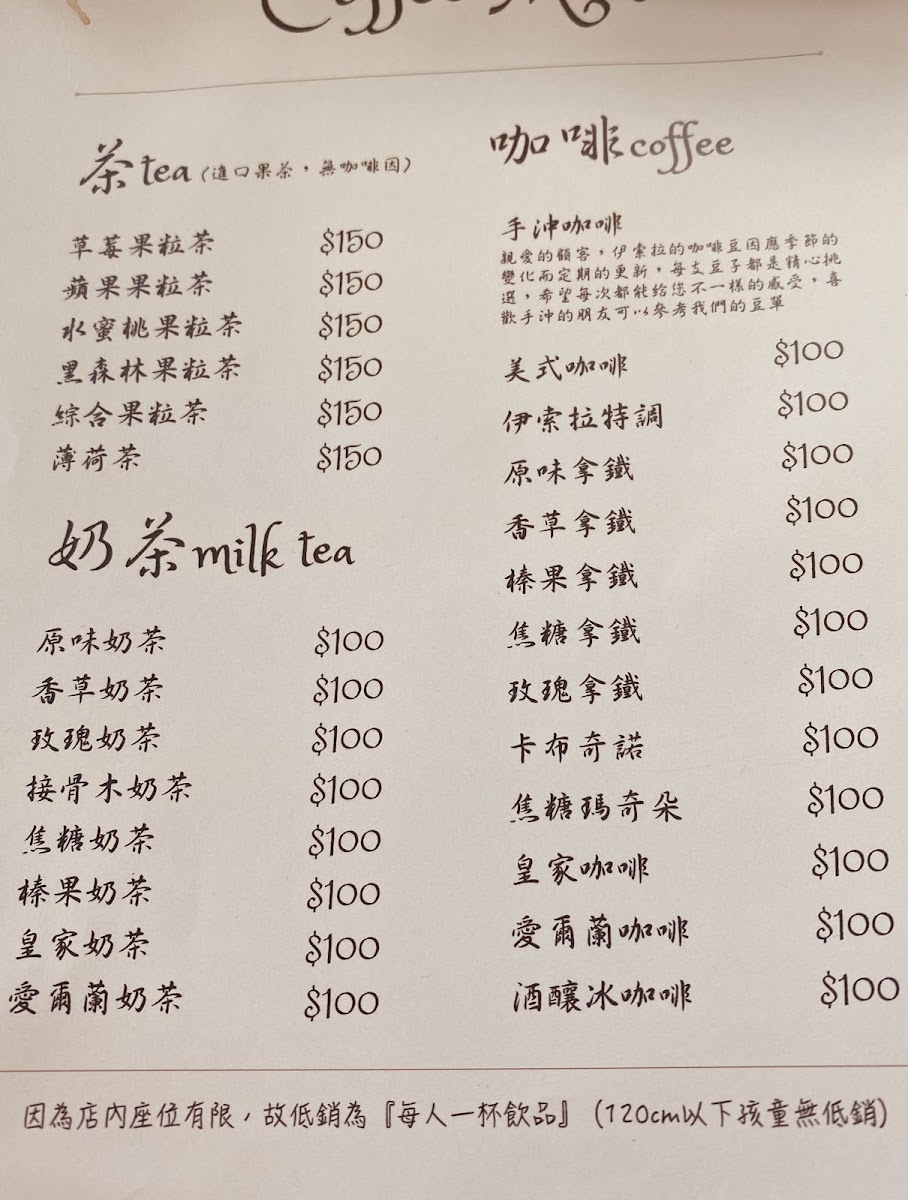 茶tea(進口果茶，無咖啡因)
草莓果粒茶 $150
蘋果果粒茶 $150
水蜜桃果粒茶 $150
黑森林果粒茶 $150
綜合果粒茶 $150
薄荷茶 $150
奶茶milk tea
原味奶茶 $100
香草奶茶 $100
玫瑰奶茶 $100
接骨木奶茶 $100
焦糖奶茶 $100
榛果奶茶 $100
皇家奶茶 $100
愛爾蘭奶茶 $100
咖啡coffee
手沖咖啡
親愛的顧客，伊索拉的咖啡豆因應季節的
變化而定期的更新，每支豆子都是精心挑
選，希望每次都能給您不一樣的感受，喜
歡手沖的朋友可以參考我們的豆單
美式咖啡 $100
伊索拉特調 $100
原味拿鐵 $100
香草拿鐵 $100
榛果拿鐵 $100
焦糖拿鐵 $100
玫瑰拿鐵 $100
卡布奇諾 $100
焦糖瑪奇朵 $100
皇家咖啡 $100
愛爾蘭咖啡 $100
酒釀冰咖啡 $100
因為店內座位有限，故低銷為『每人一杯飲品』(120cm以下孩童無低銷)